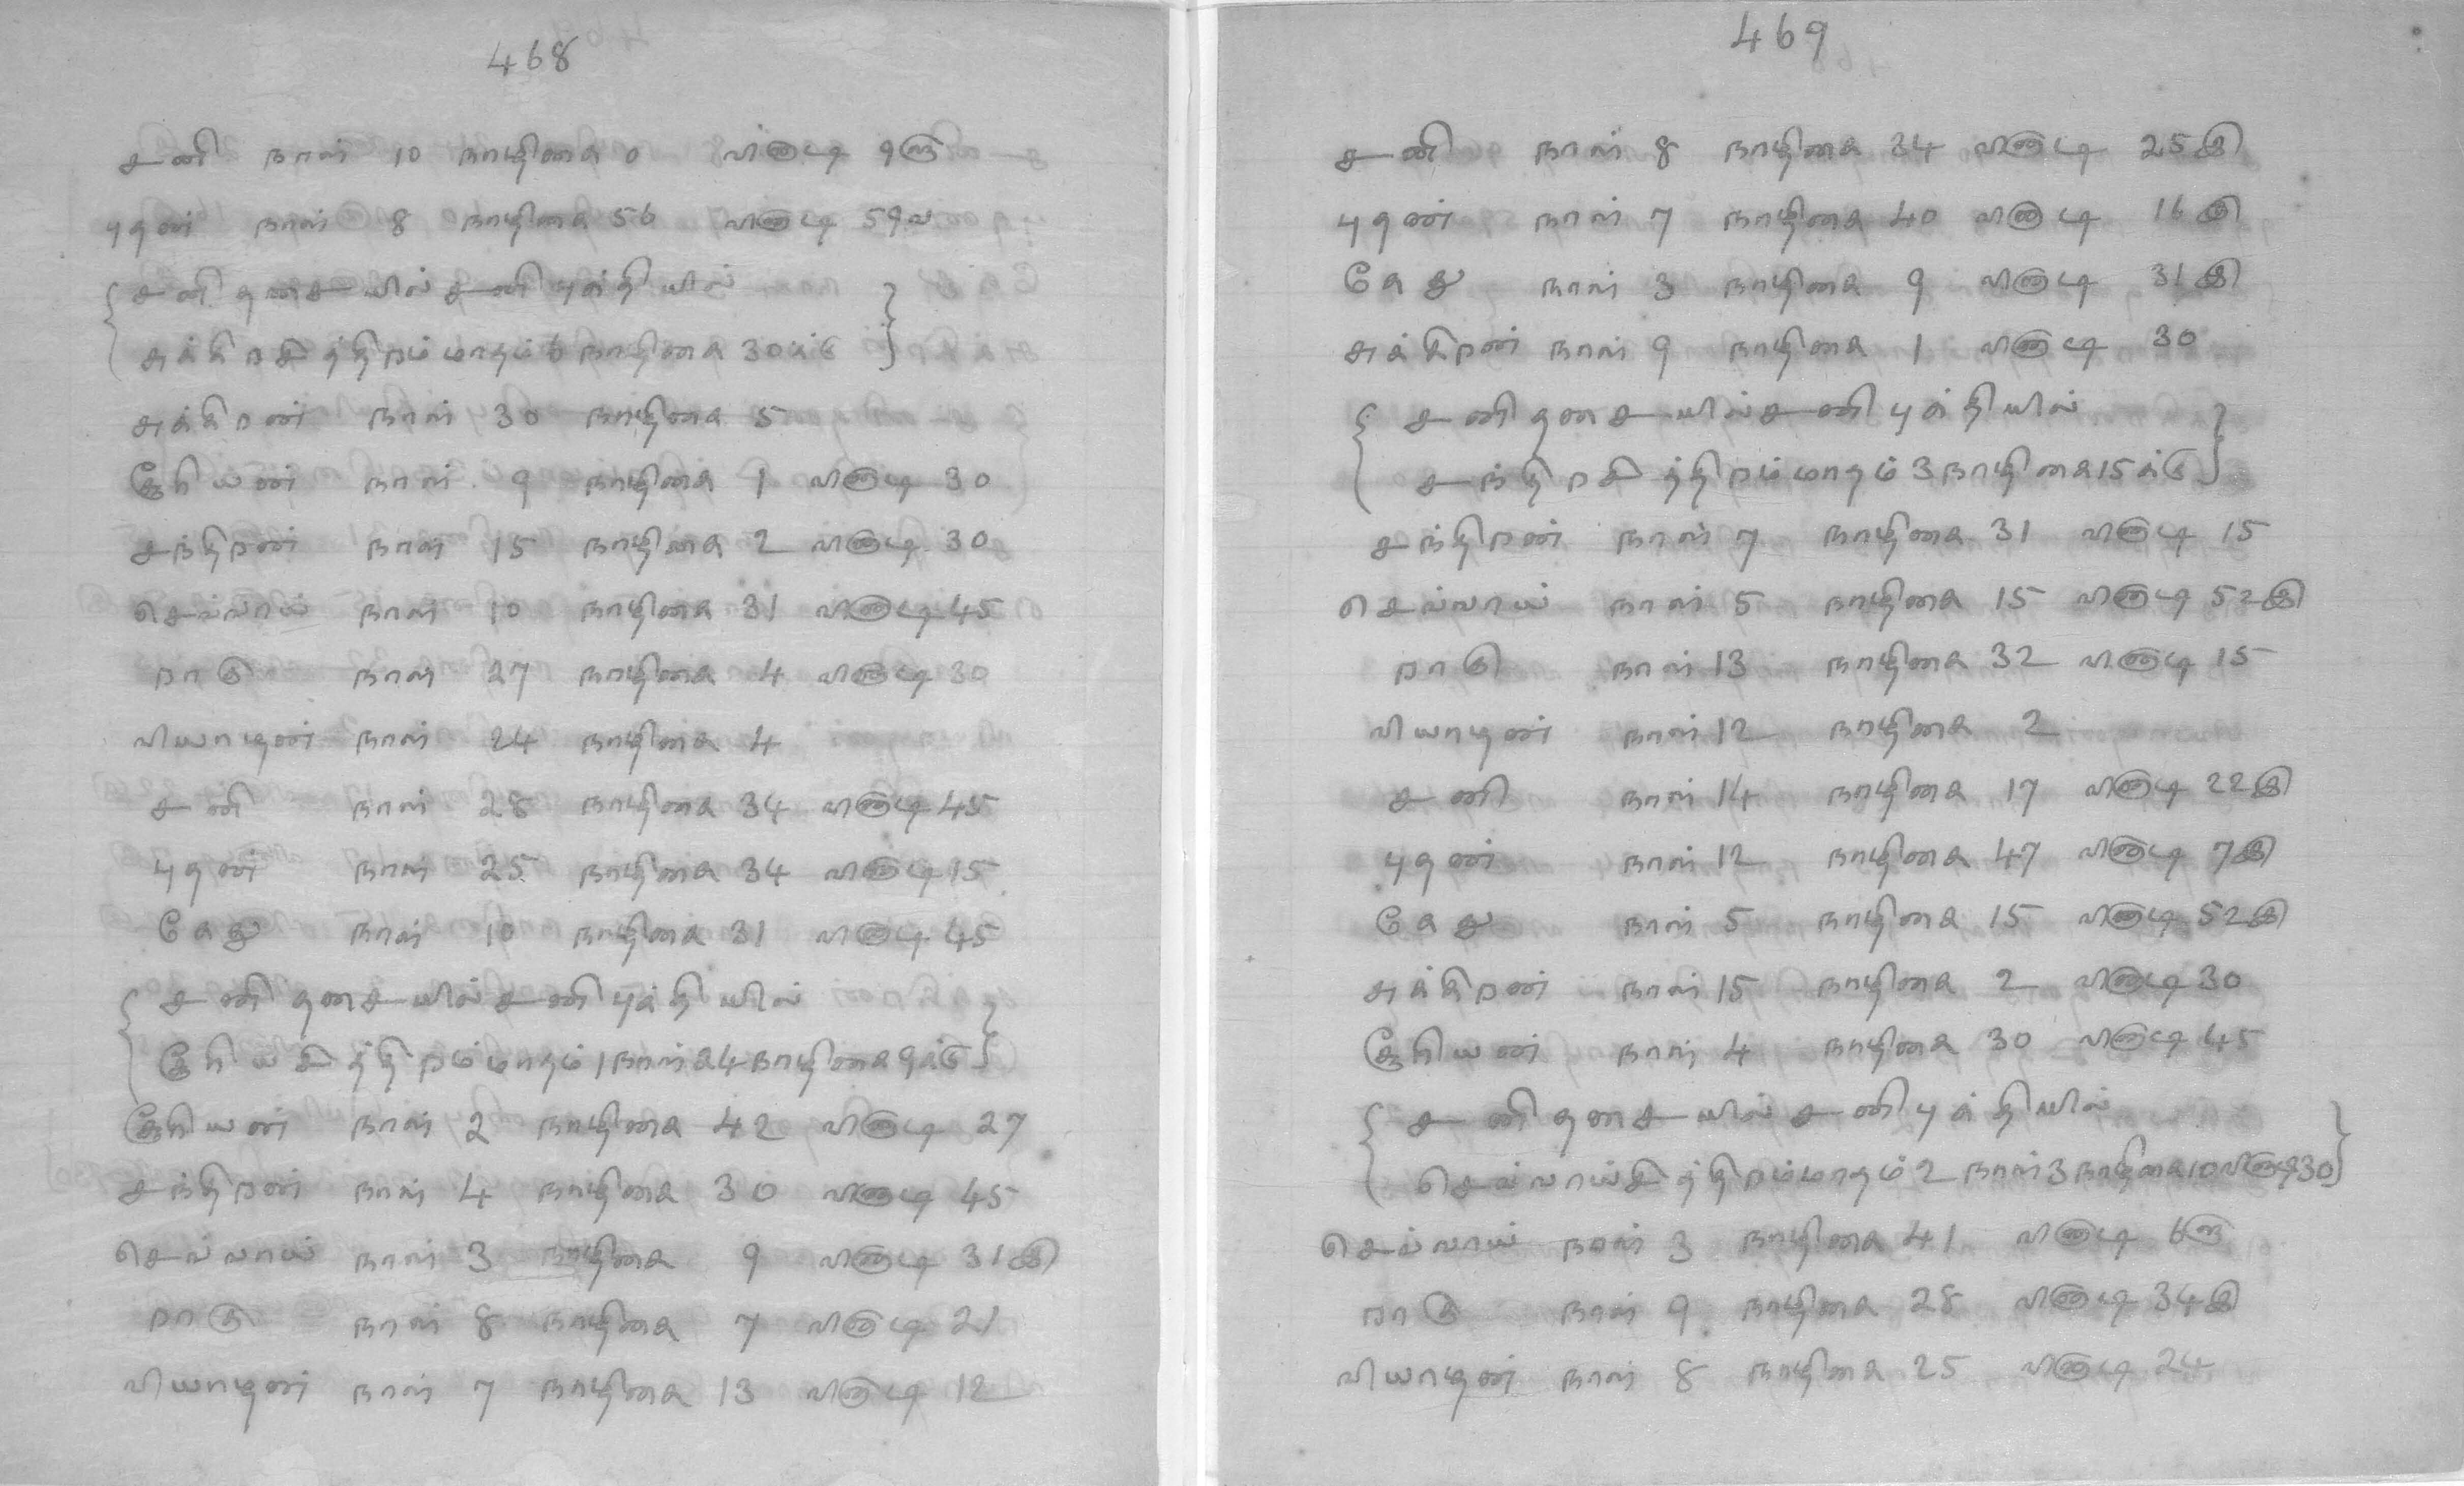 468
சனி நாள் 10 நாழிகை 0 வினாடி 9௵
புதன் நாள் 8 நாழிகை 56 வினாடி 59௳
{ சனி தசையில் சனி புக்தியில்
சுக்கிறசித்திறம் மாதம் 6 நாழிகை 30க்கு }
சுக்கிறன் நாள் 30 நாழிகை 5
சூரியன் நாள் 9 நாழிகை 1 வினாடி 30
சந்திறன் நாள் 15 நாழிகை 2 வினாடி 30
செவ்வாய் நாள் 10 நாழிகை 31 வினாடி 45
றாகு நாள் 27 நாழிகை 4 வினாடி 30
வியாழன் நாள் 24 நாழிகை 4
சனி நாள் 28 நாழிகை 34 வினாடி 45
புதன் நாள் 25 நாழிகை 34 வினாடி 15
கேது நாள் 10 நாழிகை 31 வினாடி 45
{ சனி தசையில் சனி புக்தியில்
சூரியசித்திறம் மாதம் 1 நாள் 24 நாழிகை 9க்கு }
சூரியன் நாள் 2 நாழிகை 42 வினாடி 27
சந்திறன் நாள் 4 நாழிகை 30 வினாடி 45
செவ்வாய் நாள் 3 நாழிகை 9 வினாடி 31இ
றாகு நாள் 8 நாழிகை 7 வினாடி 21
வியாழன் நாள் 7 நாழிகை 13 வினாடி 12
469
சனி நாள் 8 நாழிகை 34 வினாடி 25இ
புதன் நாள் 7 நாழிகை 40 வினாடி 16இ
கேது நாள் 3 நாழிகை 9 வினாடி 31இ
சுக்கிறன் நாள் 9 நாழிகை 1 வினாடி 30
{ சனி தசையில் சனி புக்தியில்
சந்திறசித்திறம் மாதம் 3 நாழிகை 15க்கு }
சந்திறன் நாள் 7 நாழிகை 31 வினாடி 15
செவ்வாய் நாள் 5 நாழிகை 15 வினாடி 52இ
றாகு நாள் 13 நாழிகை 32 வினாடி 15
வியாழன் நாள் 12 நாழிகை 2
சனி நாள் 14 நாழிகை 17 வினாடி 22இ
புதன் நாள் 12 நாழிகை 47 வினாடி 7இ
கேது நாள் 5 நாழிகை 15 வினாடி 52இ
சுக்கிறன் நாள் 15 நாழிகை 2 வினாடி 30
சூரியன் நாள் 4 நாழிகை 30 வினாடி 45
{ சனி தசையில் சனி புக்தியில்
செவ்வாய்சித்திறம் மாதம் 2 நாள் 3 நாழிகை 10 வினாடி 30 }
செவ்வாய் நாள் 3 நாழிகை 41 வினாடி 6௵
றாகு நாள் 9 நாழிகை 28 வினாடி 34இ
வியாழன் நாள் 8 நாழிகை 25 வினாடி 24